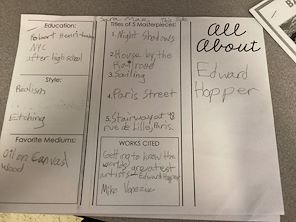 Education:
Robert Henri
NYC
after high school
Style:
Realism
Etching
Favorite Mediums:
Oil on Canvas
Wood
Titles of 5 Masterpieces:
1. Night Shadows
2. House by the
Railroad
3. Sailing
4. Paris Street
5. Stairway at 48
rue de Lille, Paris.
WORKS CITED
Getting to know the
worlds greatest
artists Edward Hopper
Mike Venezia
All
About
Edward
Hopper